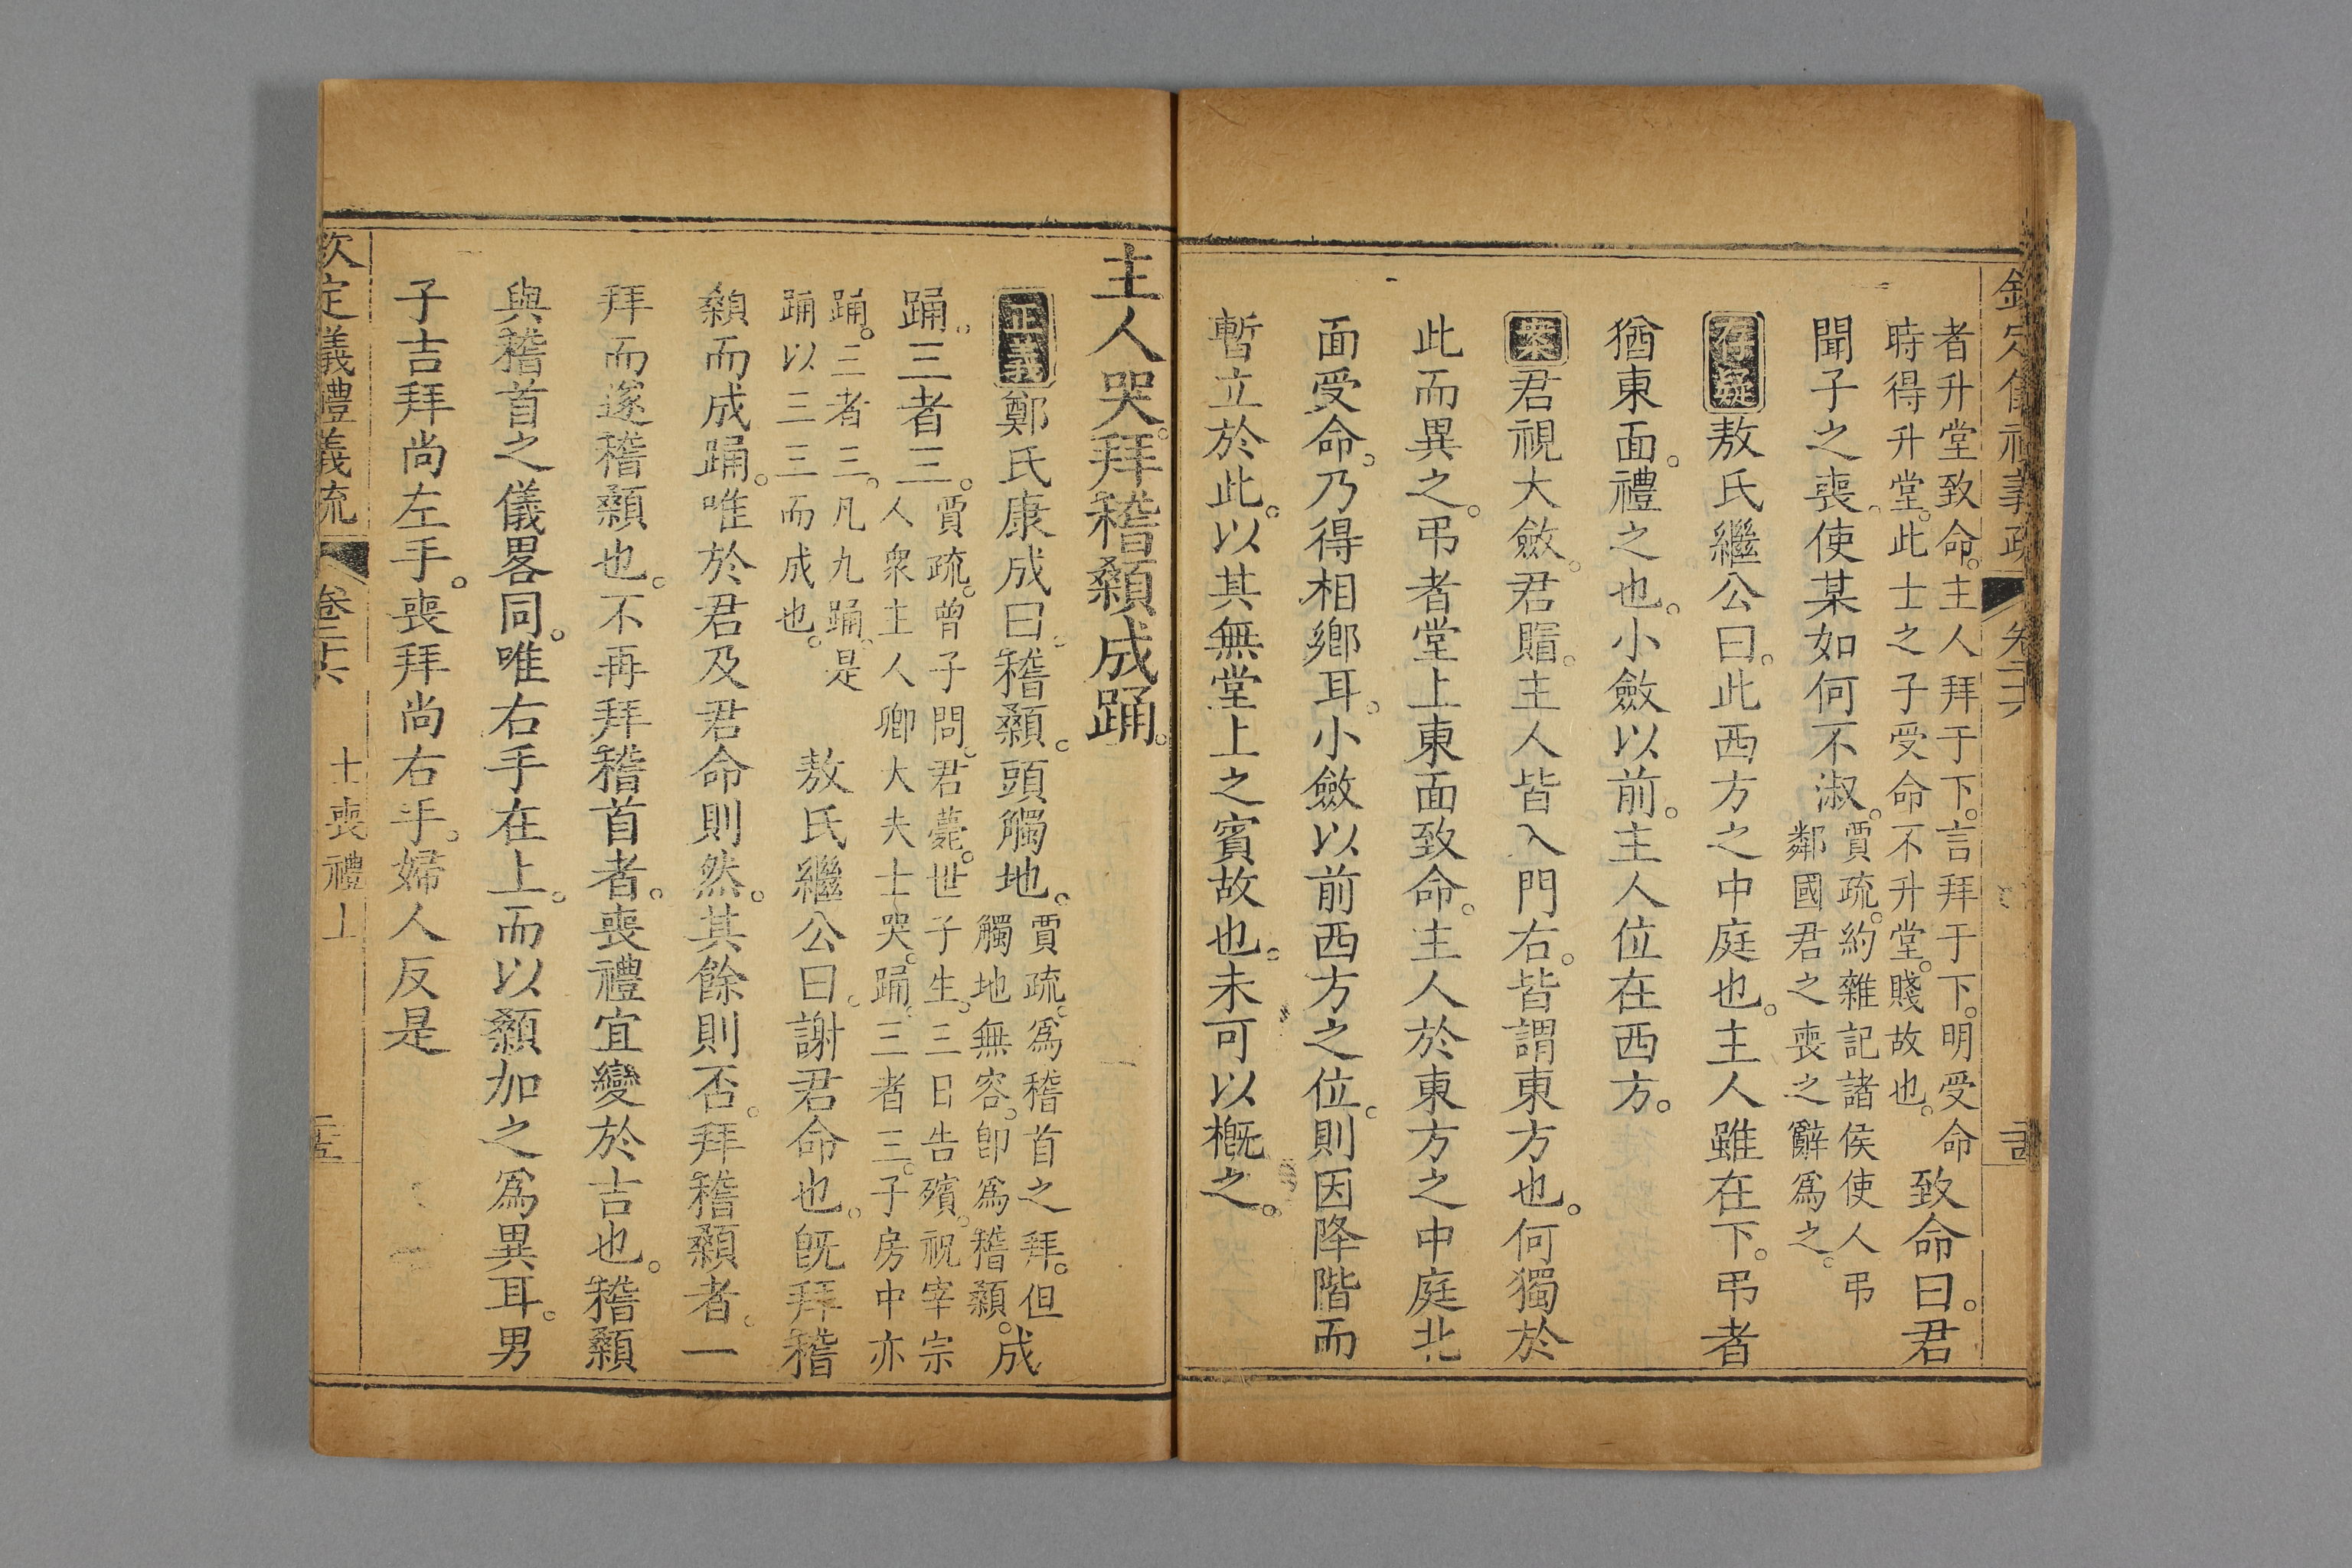 欽定儀禮義疏 卷二十六
者升堂致命。主人拜于下。言拜于下。明受命
時得升堂。此士之子受命不升堂。賤故也。
致命曰。君
聞子之喪。使某如何不淑。
賈疏。約雜記諸侯使人弔
鄰國君之喪之辭爲之。
存疑敖氏繼公曰。此西方之中庭也。主人雖在下。弔者
猶東面。禮之也。小斂以前。主人位在西方。
案君視大斂。君賵。主人皆入門右。皆謂東方也。何獨於
此而異之。弔者堂上東面致命。主人於東方之中庭北
面受命。乃得相鄉耳。小斂以前西方之位。則因降階而
暫立於此。以其無堂上之賓故也。未可以概之。
主人哭。拜稽顙成踊。
正義鄭氏康成曰。稽顙。頭觸地。
賈疏。爲稽首之拜。但
觸地無容。卽爲稽顙。
成
踊。三者三。
賈疏。曾子問。君薨。世子生。三日告殯。祝宰宗
人衆主人卿大夫士哭。踊。三者三。子房中亦
踊。三者三。凡九踊。是
踊以三三而成也。
敖氏繼公曰。謝君命也。旣拜稽
顙而成踊。唯於君及君命則然。其餘則否。拜稽顙者。一
拜而遂稽顙也。不再拜稽首者。喪禮宜變於吉也。稽顙
與稽首之儀畧同。唯右手在上。而以顙加之爲異耳。男
子吉拜尚左手。喪拜尚右手。婦人反是
欽定儀禮義疏 卷二十六 士喪禮上 二十五